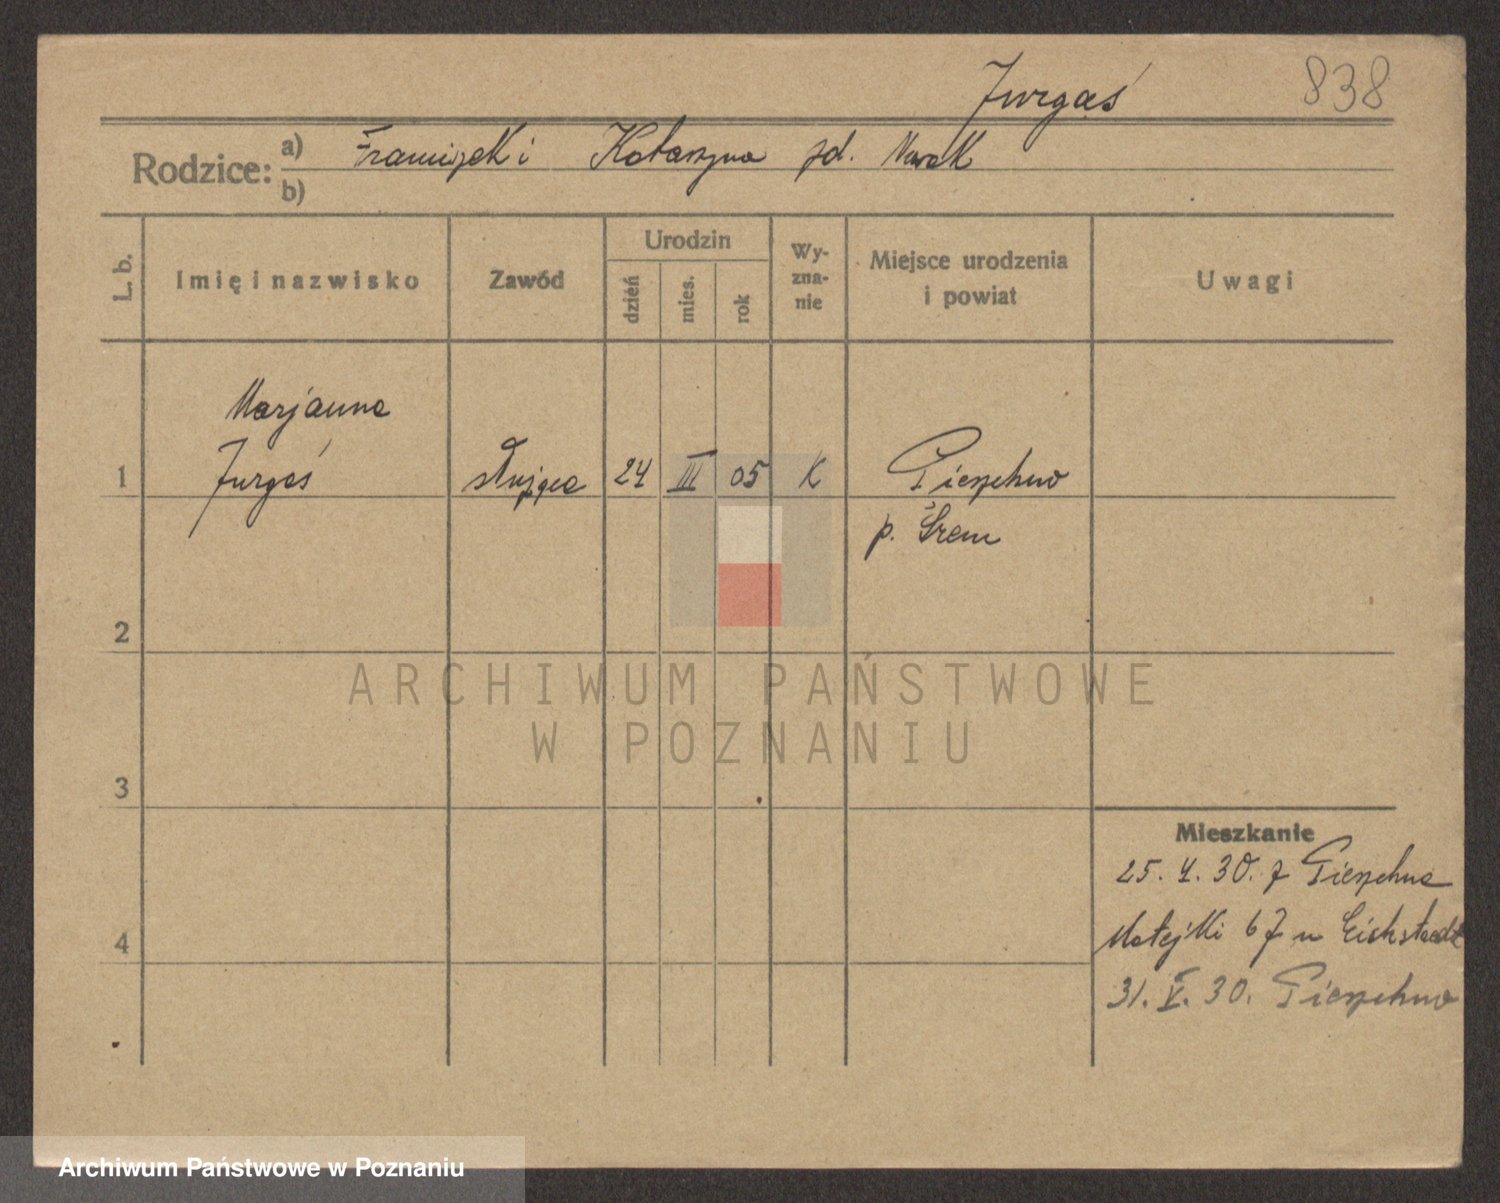 Jurgaś 838
Rodzice: a) Franciszek i Katarzyna zd. Nowak
b)
L. b. Imię i nazwisko Zawód Urodzin dzień mies. rok Wyzna-nie Miejsce urodzenia i powiat Uwagi
Marjanna
1 Jurgaś służąca 24 III 05 K Pierzchno
p. Śrem
2
ARCHIWUM PAŃSTWOWE
W POZNANIU
3
Mieszkanie
25. 4. 30. z Pierzchna
Matejki 67 u Eichstaedt
4
31. V. 30. Pierzchno
Archiwum Państwowe w Poznaniu